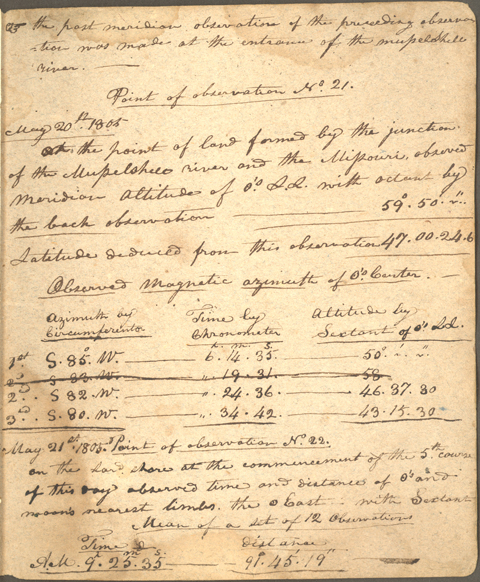 25 the post meridian observation of the preceeding observa-
tion was made at the entrance of the muscleshell
river.
Point of observation No 21.
May 20th 1805
At the point of land formed by the junction
of the Muscleshell river and the Missouri, observed
meridian altitude of ☉'s L.L. with octant by
the back observation 59°. 50'. ".
Latitude deduced from this observation 47. 00. 24.6
Observed Magnetic azimuth of ☉'s Center.
Azimuth by Time by Altitude by
Circumferentor Chronometer Sextant of ☉'s L.L.
h. m. s.
1st S. 85°. W. 6. 14. 35. 50°. ". ".
2d S. 83. W. ". 19. 31. 58
2d. S 82. W. ". 24. 36. 46. 37. 30
3rd. S. 80. W. ". 34. 42. 43. 15. 30
May 21st. 1805. Point of observation No. 22.
on the Lard. shore at the commencement of the 5th course
of this day observed time and distance of ☉'s and
moon's nearest limbs. the ☉ East with Sextant
Mean of a set of 12 Observations
Time distance
h m s
A.M. 9. 25. 35 91°. 45'. 19"